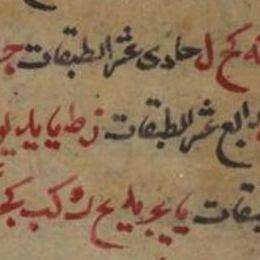 كح ل حادى عشر الطبقات
رابع عشر الطبقات ز ط يا يد يو
طبقات يا يج يد يح ك كب كج